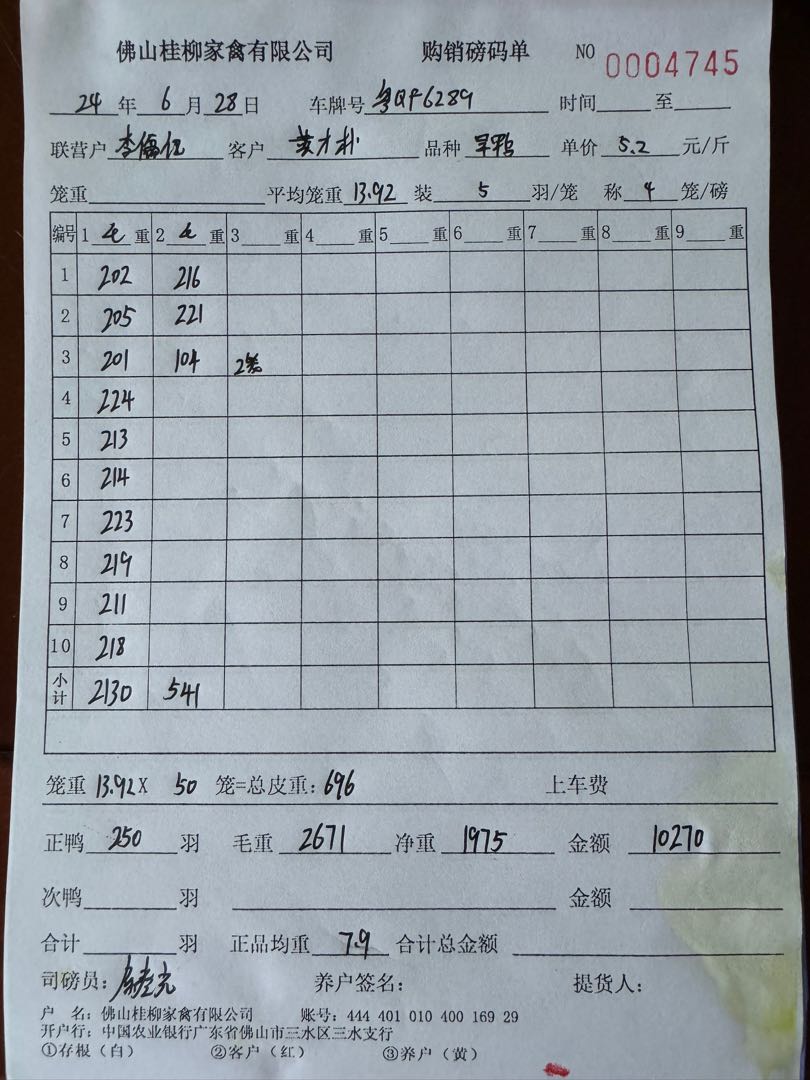 佛山桂柳家禽有限公司 购销磅码单 NO 0004745
24 年 6 月 28 日 车牌号 粤QF6289 时间 至
联营户 李 客户 黄才朴 品种 旱鸭 单价 5.2 元/斤
笼重 平均笼重 13.92 装 5 羽/笼 称 4 笼/磅
编号 1 毛 重 2 毛 重 3 重 4 重 5 重 6 重 7 重 8 重 9 重
1 202 216
2 205 221
3 201 104 2笼
4 224
5 213
6 214
7 223
8 219
9 211
10 218
小计 2130 541
笼重 13.92 X 50 笼=总皮重: 696 上车费
正鸭 250 羽 毛重 2671 净重 1975 金额 10270
次鸭 羽 金额
合计 羽 正品均重 7.9 合计总金额
司磅员: 养户签名: 提货人:
户 名: 佛山桂柳家禽有限公司 账号: 444 401 010 400 169 29
开户行: 中国农业银行广东省佛山市三水区三水支行
①存根(白) ②客户(红) ③养户(黄)